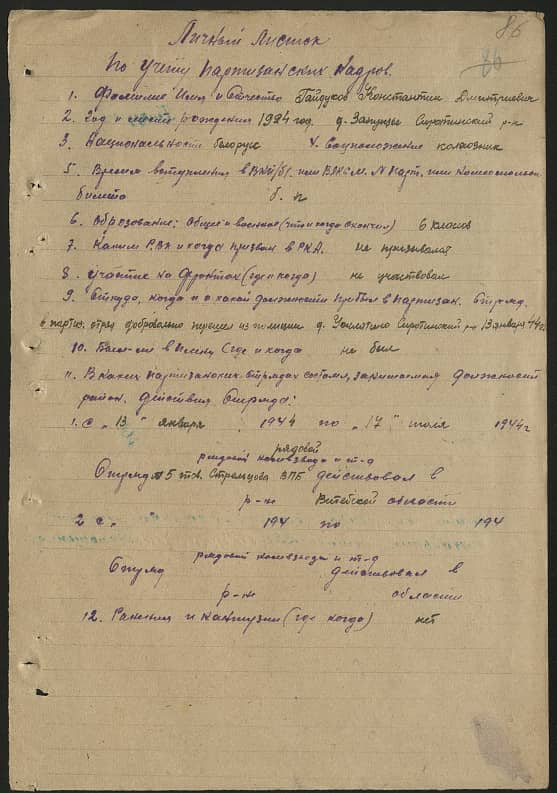 86
86
Личный Листок
По учету партизанских кадров.
1. Фамилия Имя и Отчество Гайдуков Константин Дмитриевич
2. Год и место рождения 1924 год. д. Сиротинский р-н
3. Национальность белорус 4. Соцположение колхозник
5. Время вступления в ВКП/б/. или ВЛКСМ. N Парт. или комсомольск.
билета б. п
6. Образование: Общее и военное (что и когда окончил) 6 класов
7. Каким РВК и когда призван в РККА. не призывался
8. Участие на Фронтах (где и когда) не участвовал
9. Откуда, когда и в какой должности прибыл в партизан. Отряд.
в партиз. отряд добровольно перешел из полиции д. Сиротинский р-н 13 января 44 г.
10. Был-ли в плену где и когда не был
11. В каких партизанских отрядах состоял, занимаемая должность
район. действия Отряда:
1. с "13" января 1944 по "17" июля 1944 г
рядовой
рядовой комвзвода и т-д
Отряда №5 тов. Стрельцова ВПБ действовал в
р-не Витебской области
2 с " " 194 по 194
рядовой комвзвода и т-д
Отряд действовал в
р-не области
12. Ранения и контузии (где когда) нет